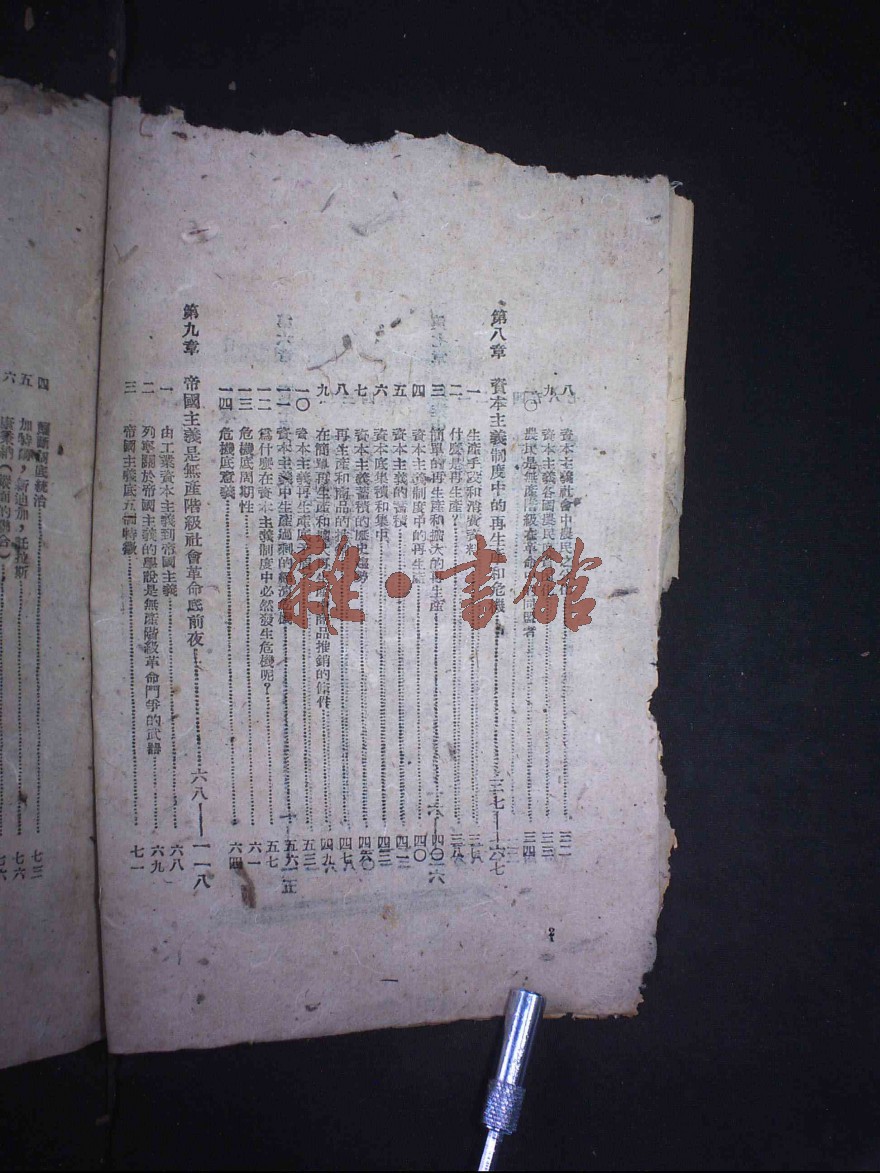 八 資本主義社會中農民之分化 三二
九 資本主義各國農民 三三
一〇 農民是無產階級在革命 同盟者 三四
第八章 資本主義制度中的再生產和危機 三七——六七
一 生產手段和消費資料
二 什麼是再生產？ 三八
三 簡單的再生產和擴大的再生產 四〇
四 資本主義制度中的再生產 四〇
五 資本主義的蓄積
六 資本底集積和集中 四三
七 資本主義蓄積的歷史趨勢
八 再生產和商品的 四七
九 在簡單再生產和擴 再生 商品推銷的條件 四九
一〇 資本主義再生產底矛盾 五三
一一 資本主義中生產過剩的 五六
一二 為什麼在資本主義制度中必然發生危機呢？ 五七
一三 危機底周期性 六一
一四 危機底意義 六四
第九章 帝國主義是無產階級社會革命底前夜 六八——一一八
一 由工業資本主義到帝國主義 六八
二 列寧關於帝國主義的學說是無產階級革命鬥爭的武器 六九
三 帝國主義底五個特徵 七一
2
四 底統治 七三
五 加特爾，新迪加，託拉斯 七六
六
雜·書館